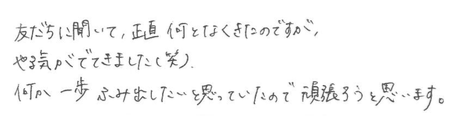 友だちに聞いて,正直 何となくきたのですが,
やる気がでてきました(笑).
何か 一歩 ふみ出したいと思っていたので 頑張ろうと思います。